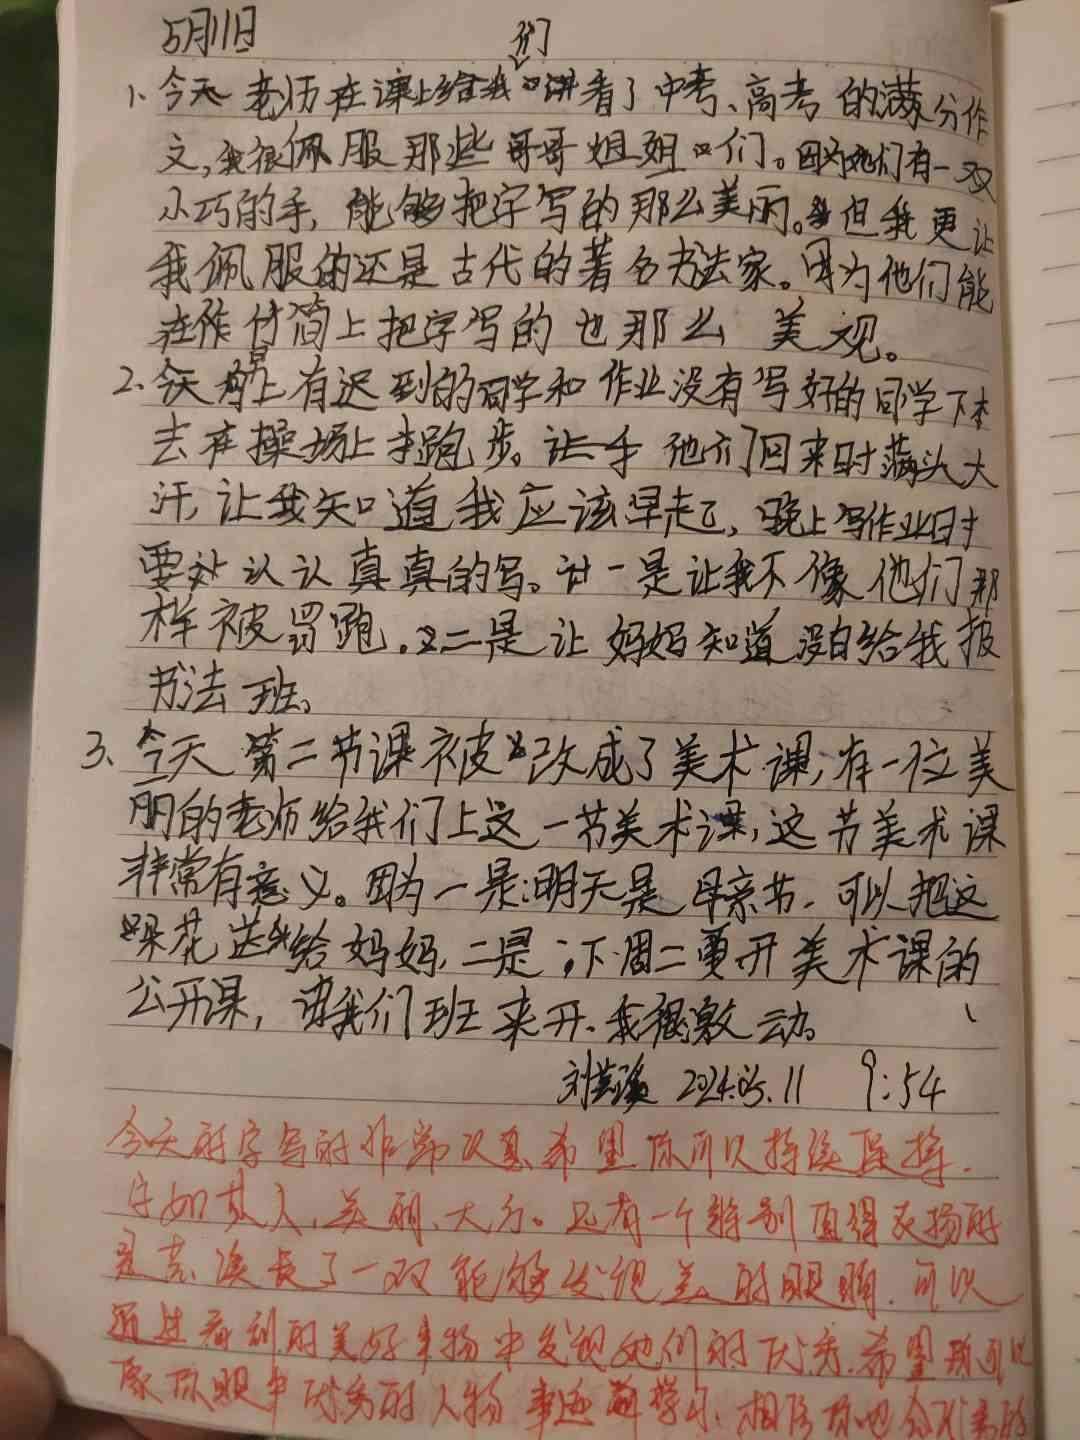 5月11日
们
1、今天老师在课上给我讲看了中考、高考的满分作
文,我很佩服那些哥哥姐姐们。因为她们有一双
小巧的手,能够把字写的那么美丽。但我更让
我佩服的还是古代的著名书法家。因为他们能
在作竹简上把字写的也那么美观。
2、今天早上有迟到的同学和作业没有写好的同学下
去在操场上跑步。让他们回来时满头大
汗,让我知道我应该早起,晚上写作业时
要认认真真的写。一是让我不像他们那
样被罚跑。二是让妈妈知道没白给我报
书法班。
3、今天第二节课被改成了美术课,有一位美
丽的老师给我们上这一节美术课,这节美术课
非常有意义。因为一是:明天是母亲节,可以把这
朵花送给妈妈,二是:下周二要开美术课的
公开课,讲我们班来开、我很激动。
刘芸溪 2024.05.11 9:54
今天的字写的非常认真希望你可以持续保持.
字如其人,美丽、大方。还有一个特别值得表扬的
是芸溪长了一双能够发现美的眼睛.可以
通过看到的美好事物中发现她们的优秀.希望你可以
像你眼中优秀的人物事迹学习.相信你也会优秀的